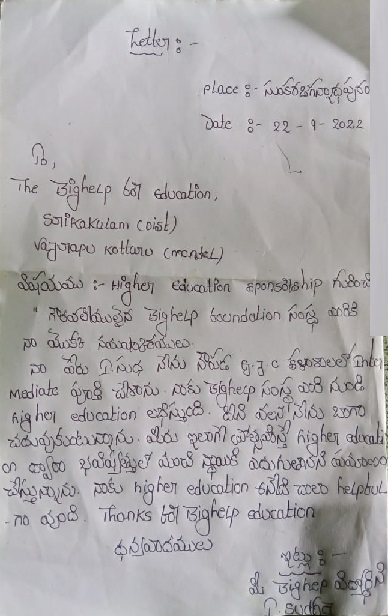 Letter :-
place :- సుంకరజగన్నాధపురం
Date :- 22 - 9 - 2022
To,
The Bighelp for education,
Srikakulam (Dist)
Vajrapu kotturu (mandal)
విషయము :- Higher education sponsorship గురించి
" గౌరవనీయులైన Bighelp foundation సంస్థ వారికి
నా యొక్క నమస్కారములు.
నా పేరు P. సుధ నేను G.J.C కళాశాలలో Inter
mediate పూర్తి చేశాను. నాకు Bighelp సంస్థ వారి నుండి
higher education లభిస్తుంది. దీని వలన నేను బాగా
చదువుకుంటున్నాను. మీరు ఇలాగే higher educati
on ద్వారా భవిష్యత్తులో మంచి స్థాయికి
చేస్తున్నాను. నాకు higher education అనేది చాలా helpful
-గా వుంది. Thanks for Bighelp education
ధన్యవాదములు
ఇట్లు :-
మీ Bighelp విద్యార్థిని
P. Sudha